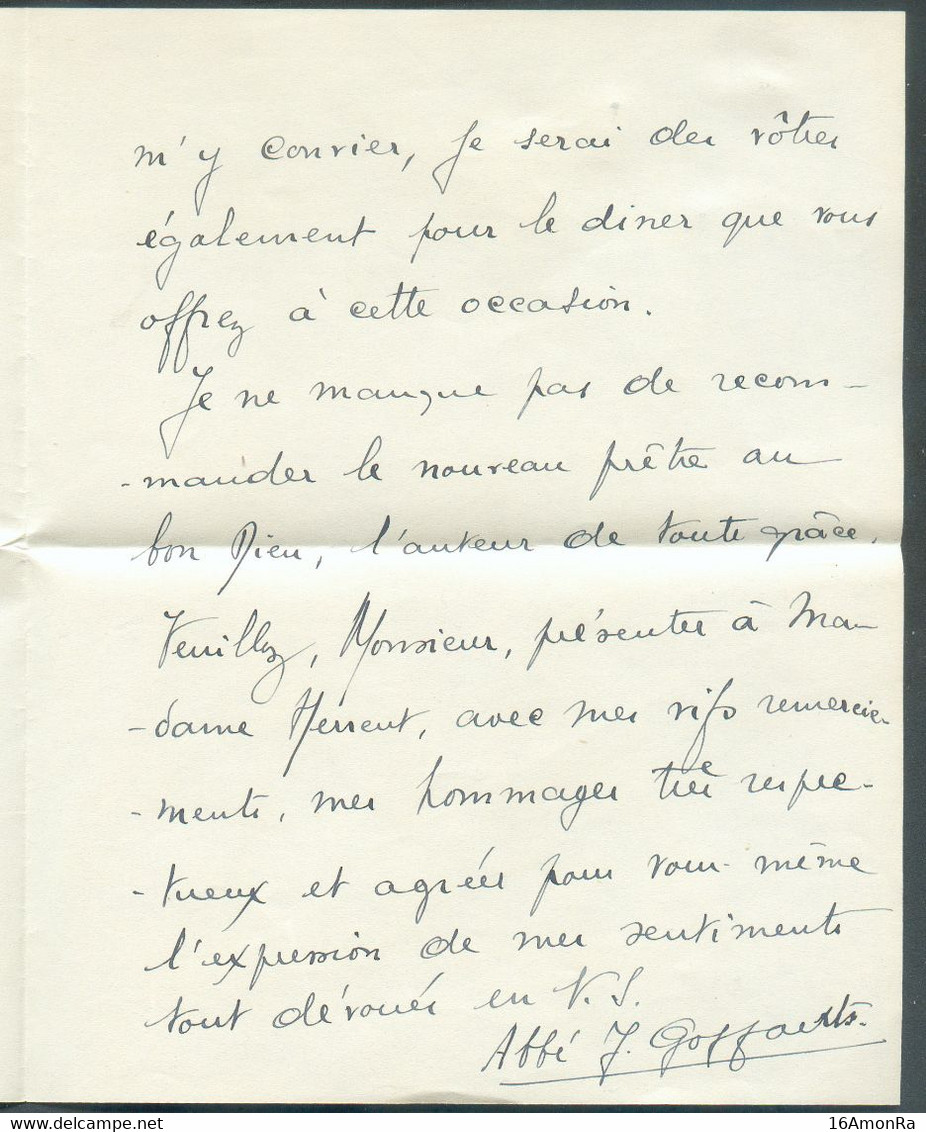 m'y convier, je serai des vôtres
également pour le diner que vous
offrez à cette occasion.
Je ne manque pas de recom-
-mander le nouveau prêtre au
bon Dieu, l'auteur de toute grâce.
Veuillez, Monsieur, présenter à Ma-
-dame Herrent, avec mes vifs remercie-
-ments, mes hommages très respec-
-tueux et agréér pour vous-même
l'expression de mes sentiments
tout dévoués en N. S.
Abbé J. Goffaerts.
16AmonRa